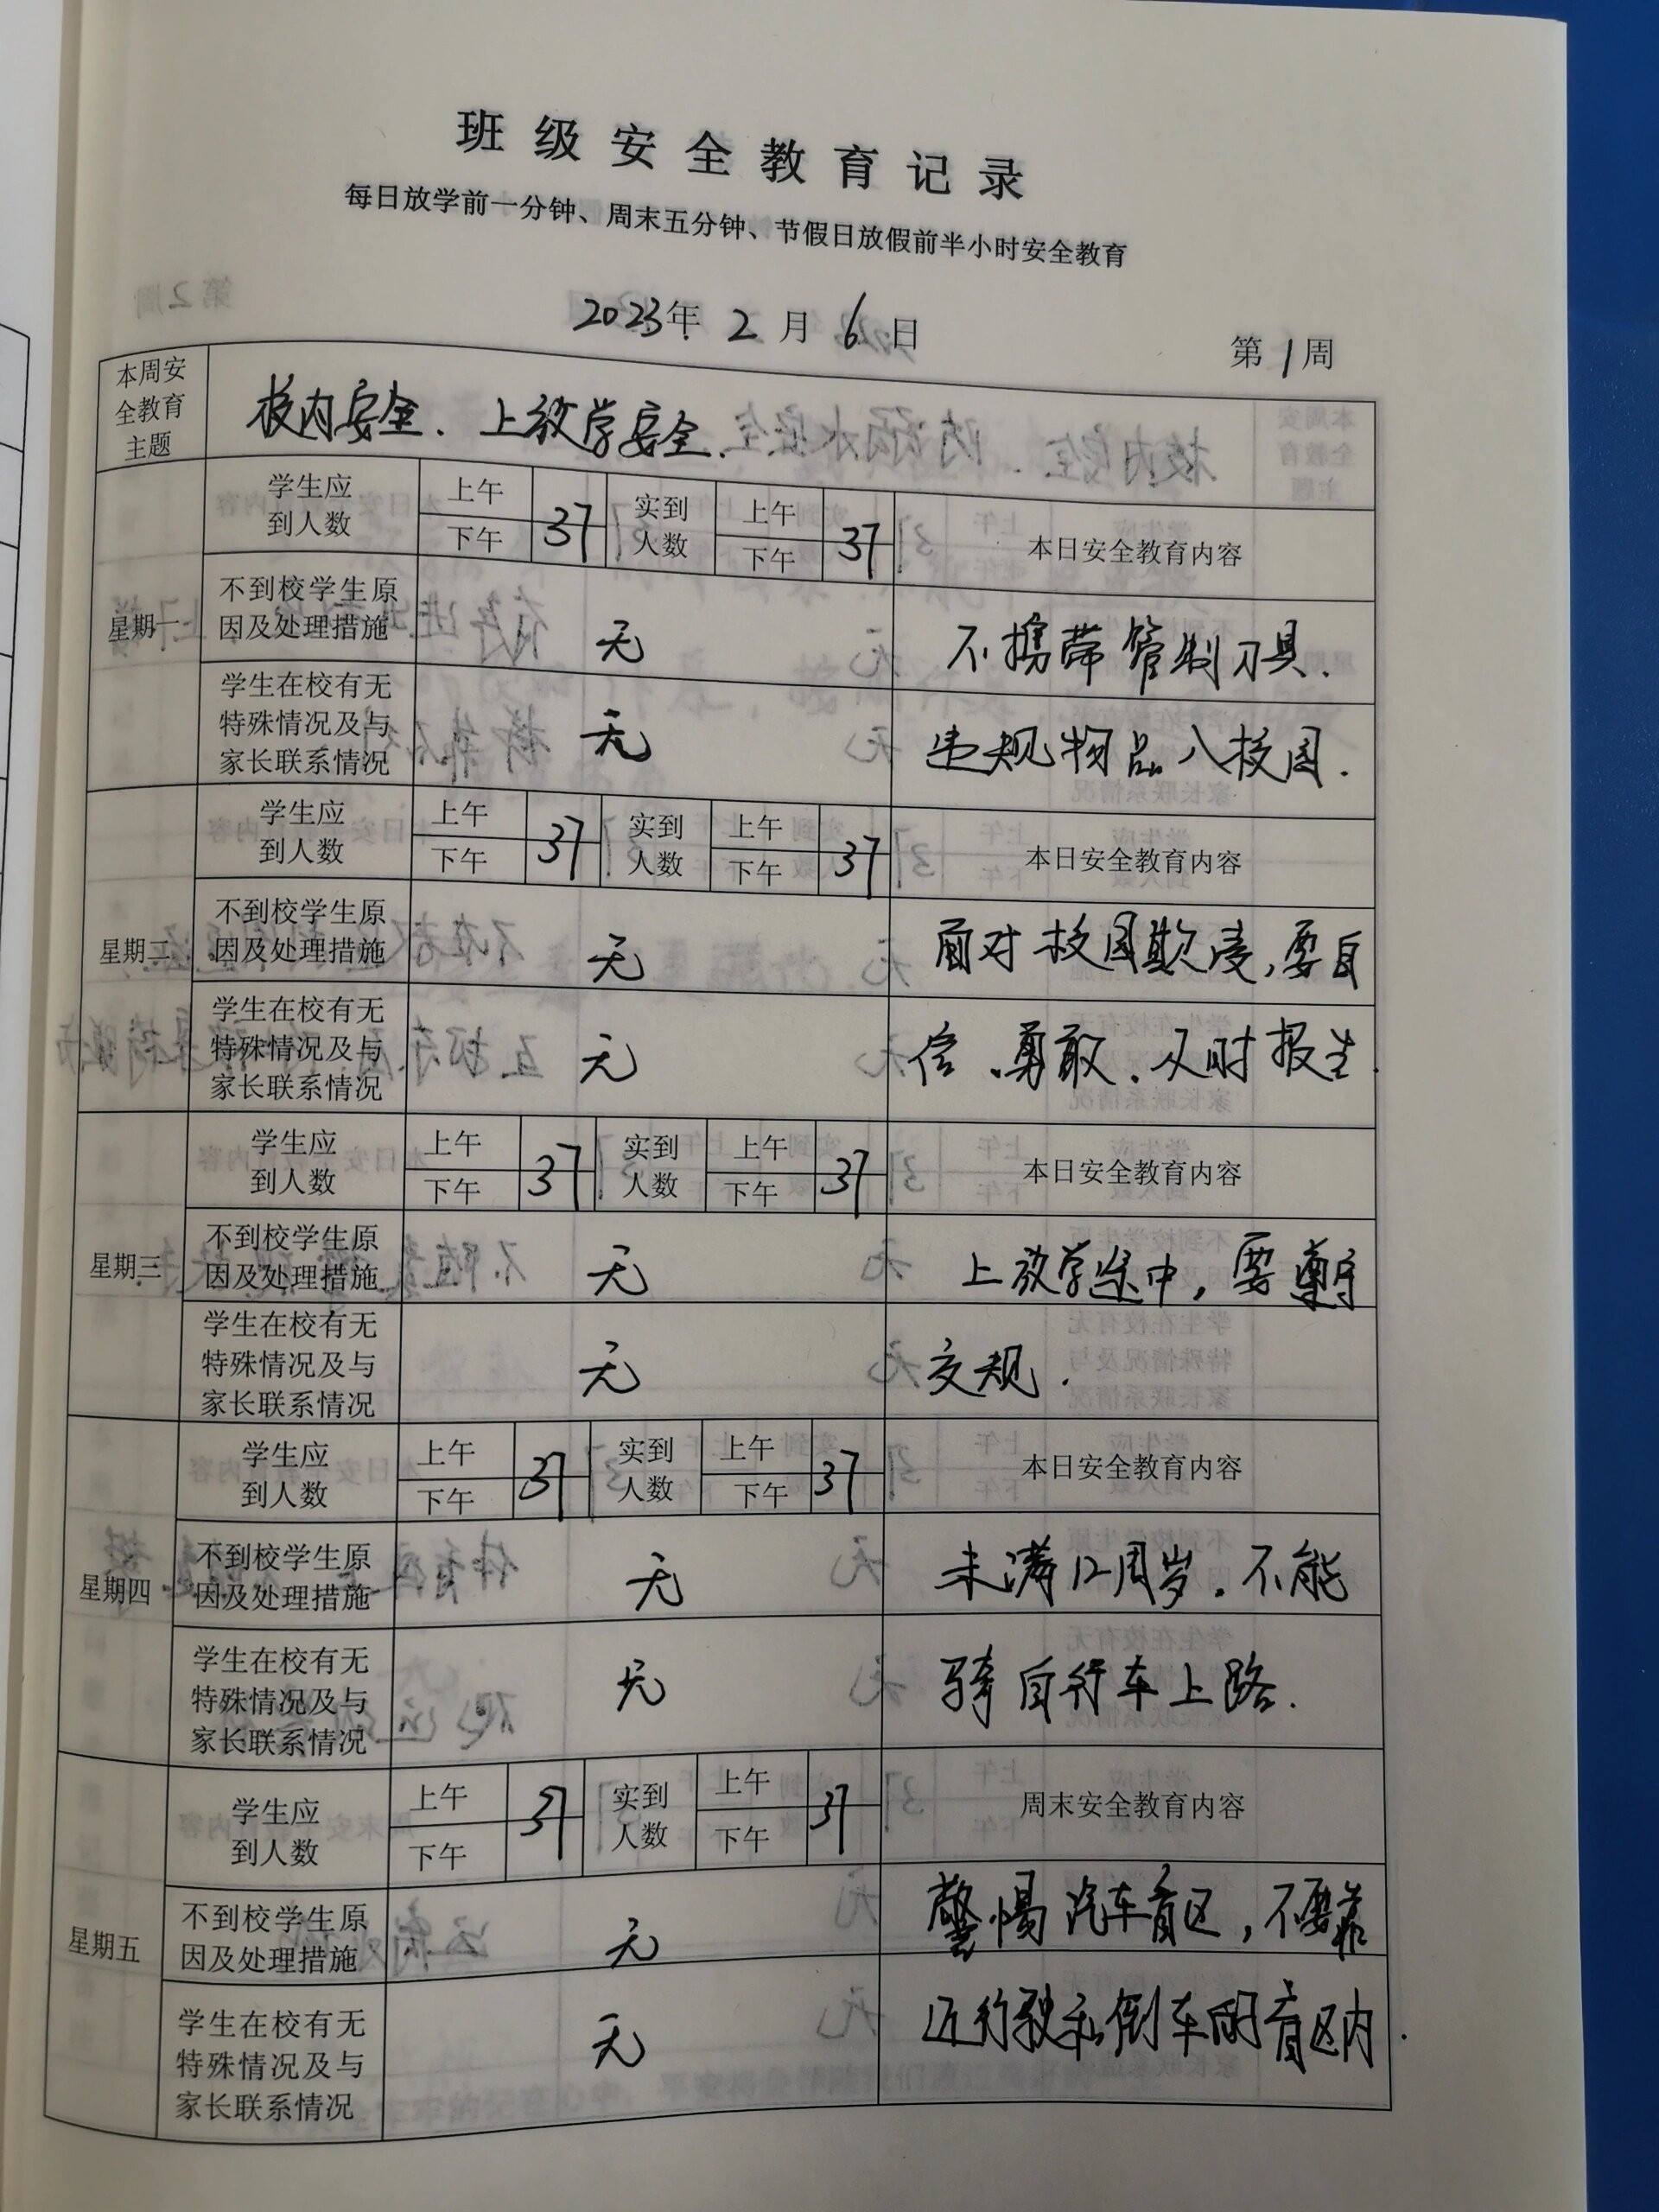 班级安全教育记录
每日放学前一分钟、周末五分钟、节假日放假前半小时安全教育
2023年 2 月 6 日
第 1 周
本周安
全教育
主题
校内安全、上放学安全.
星期一
学生应
到人数
上午
下午
37
实到
人数
上午
下午
37
本日安全教育内容
不到校学生原
因及处理措施
无
不携带管制刀具.
学生在校有无
特殊情况及与
家长联系情况
无
违规物品入校园.
星期二
学生应
到人数
上午
下午
37
实到
人数
上午
下午
37
本日安全教育内容
不到校学生原
因及处理措施
无
面对校园欺凌,要自
学生在校有无
特殊情况及与
家长联系情况
无
信、勇敢、及时报告.
星期三
学生应
到人数
上午
下午
37
实到
人数
上午
下午
37
本日安全教育内容
不到校学生原
因及处理措施
无
上放学途中,要遵守
学生在校有无
特殊情况及与
家长联系情况
无
交规.
星期四
学生应
到人数
上午
下午
37
实到
人数
上午
下午
37
本日安全教育内容
不到校学生原
因及处理措施
无
未满12周岁,不能
学生在校有无
特殊情况及与
家长联系情况
无
骑自行车上路.
星期五
学生应
到人数
上午
下午
37
实到
人数
上午
下午
37
周末安全教育内容
不到校学生原
因及处理措施
无
警惕汽车盲区,不要靠
学生在校有无
特殊情况及与
家长联系情况
无
近行驶和倒车的盲区内.